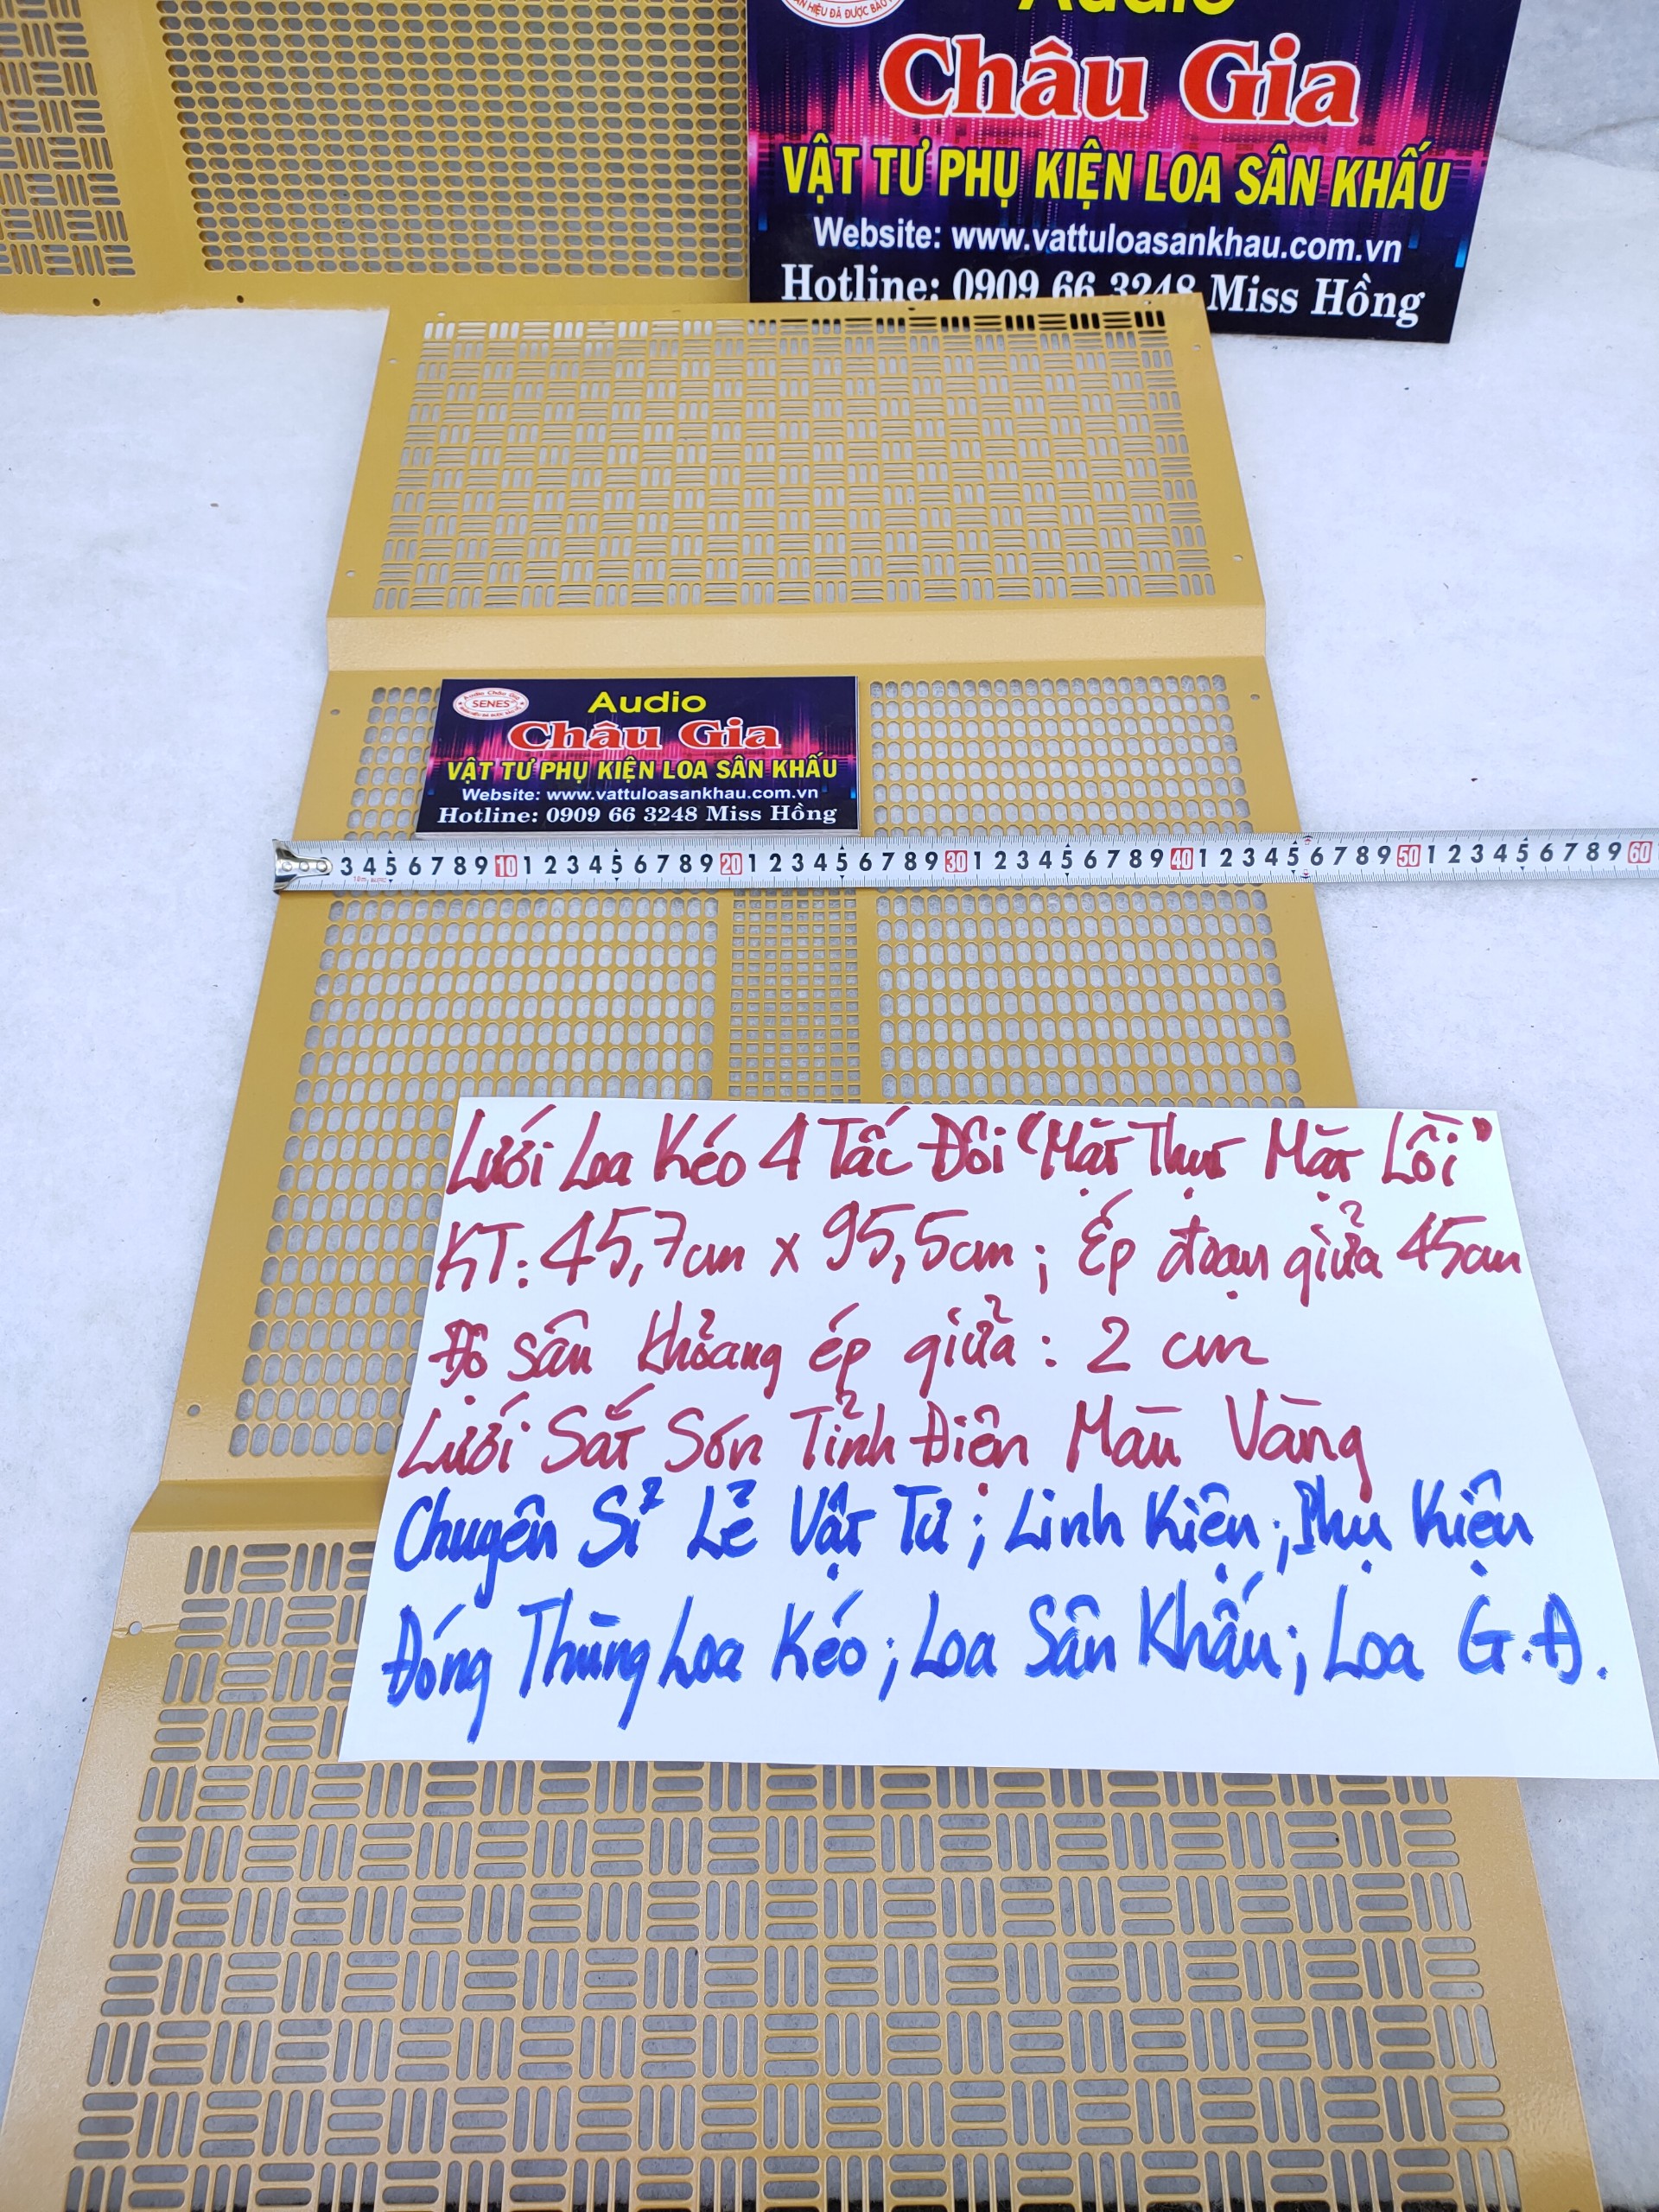 Audio
Châu Gia
VẬT TƯ PHỤ KIỆN LOA SÂN KHẤU
Website: www.vattuloasankhau.com.vn
Hotline: 0909 66 3248 Miss Hồng
SENES
Audio
Châu Gia
VẬT TƯ PHỤ KIỆN LOA SÂN KHẤU
Website: www.vattuloasankhau.com.vn
Hotline: 0909 66 3248 Miss Hồng
3 4 5 6 7 8 9 10 1 2 3 4 5 6 7 8 9 20 1 2 3 4 5 6 7 8 9 30 1 2 3 4 5 6 7 8 9 40 1 2 3 4 5 6 7 8 9 50 1 2 3 4 5 6 7 8 9 60
Lưới Loa Kéo 4 Tấc Đôi "Mặt Thụt Mặt Lồi"
KT: 45,7cm x 95,5cm; Ép đoạn giửa 45cm
Độ sâu khoảng ép giửa: 2 cm
Lưới Sắt Sơn Tỉnh Điện Màu Vàng
Chuyên Sỉ Lẻ Vật Tư; Linh Kiện; Phụ Kiện
Đóng Thùng Loa Kéo; Loa Sân Khấu; Loa G.Đ.